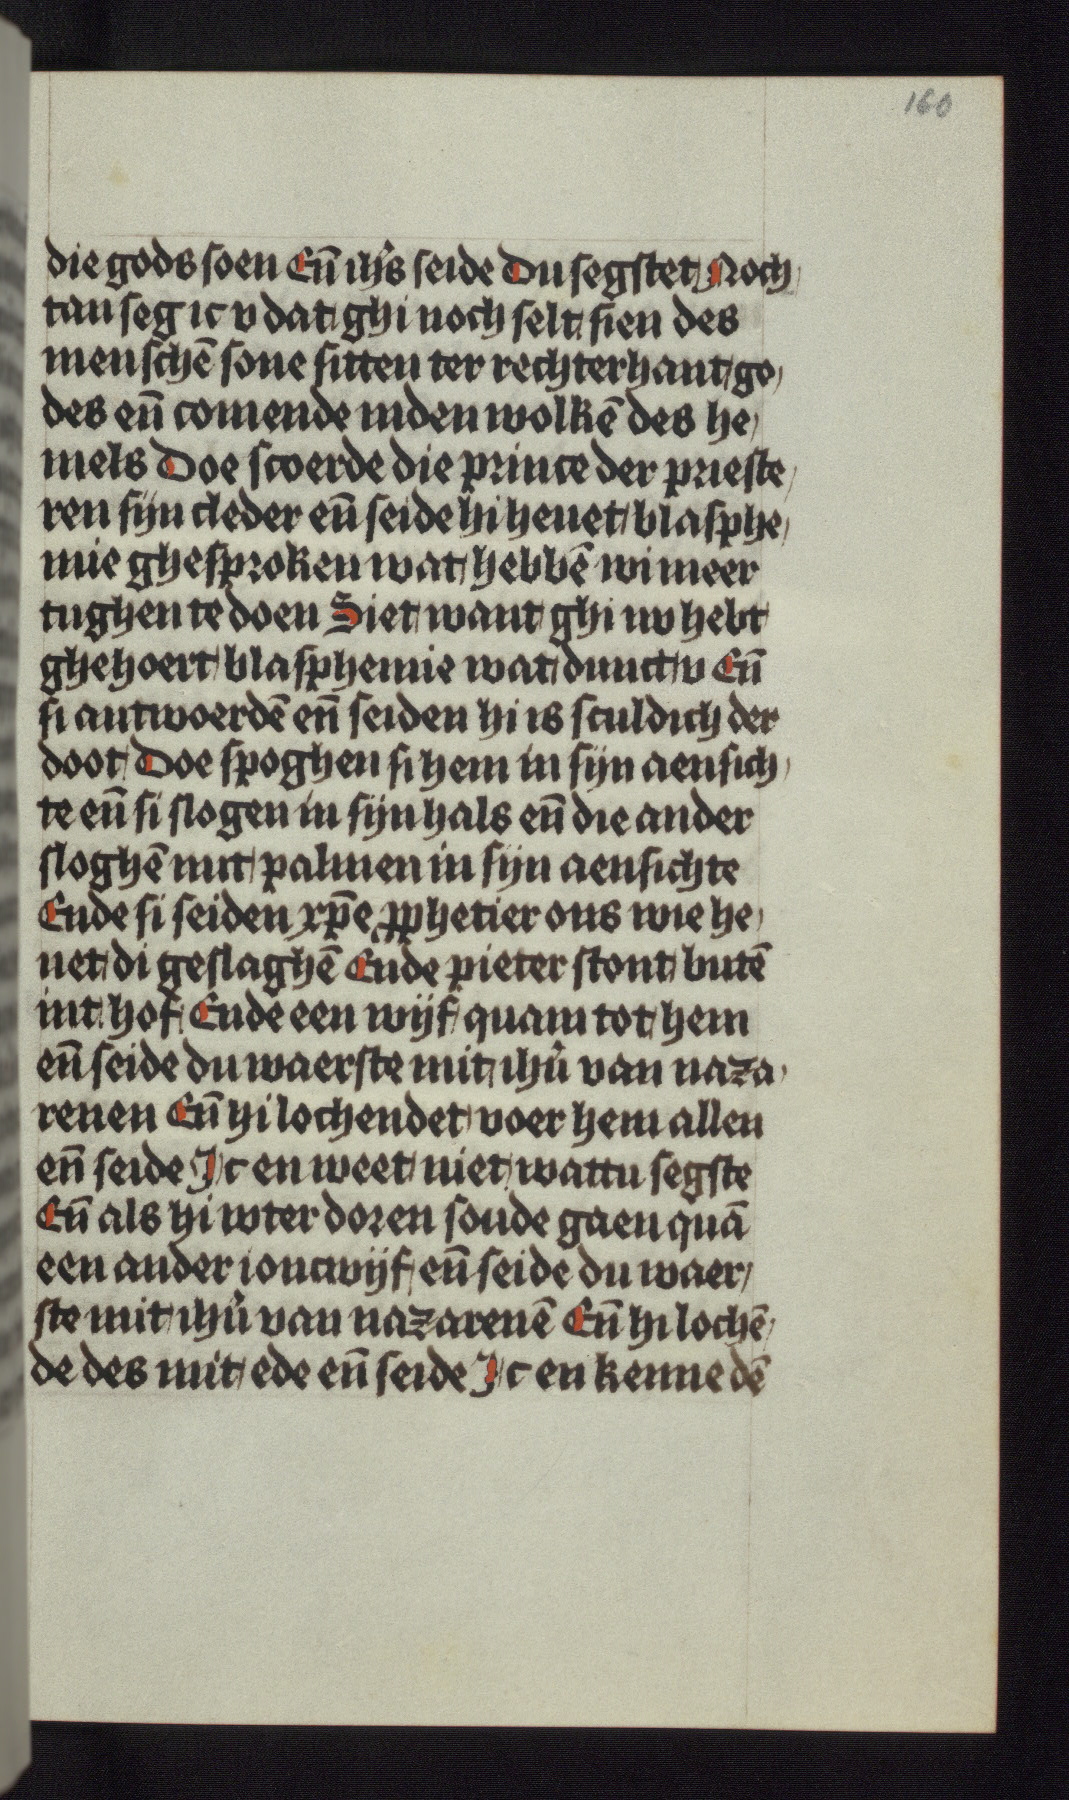 160
die gods soen En̄ ih̄s seide Du segstet Noch
tan seg ic v dat ghi noch selt sien des
menschē sone sitten ter rechterhant go
des en̄ comende inden wolkē des he
mels Doe scoerde die prince der prieste
ren sijn cleder en̄ seide hi heuet blasphe
mie ghesproken wat hebbē wi meer
tughen te doen Siet want ghi nv hebt
ghehoert blasphemie wat dunct v En̄
si antwoerdē en̄ seiden hi is sculdich der
doot Doe spoghen si hem in sijn aensich
te en̄ si slogen in sijn hals en̄ die ander
sloghē mit palmen in sijn aensichte
Ende si seiden xp̄e ꝓphetier ons wie he
uet di geslaghē Ende pieter stont butē
int hof Ende een wijf quam tot hem
en̄ seide du waerste mit ihū van naza
renen En̄ hi lochendet voer hem allen
en̄ seide Ic en weet niet wattu segste
En̄ als hi wter doren soude gaen quā
een ander ioncwijf en̄ seide du waer
ste mit ihū van nazarenē En̄ hi lochē
de des mit ede en̄ seide Ic en kenne dē